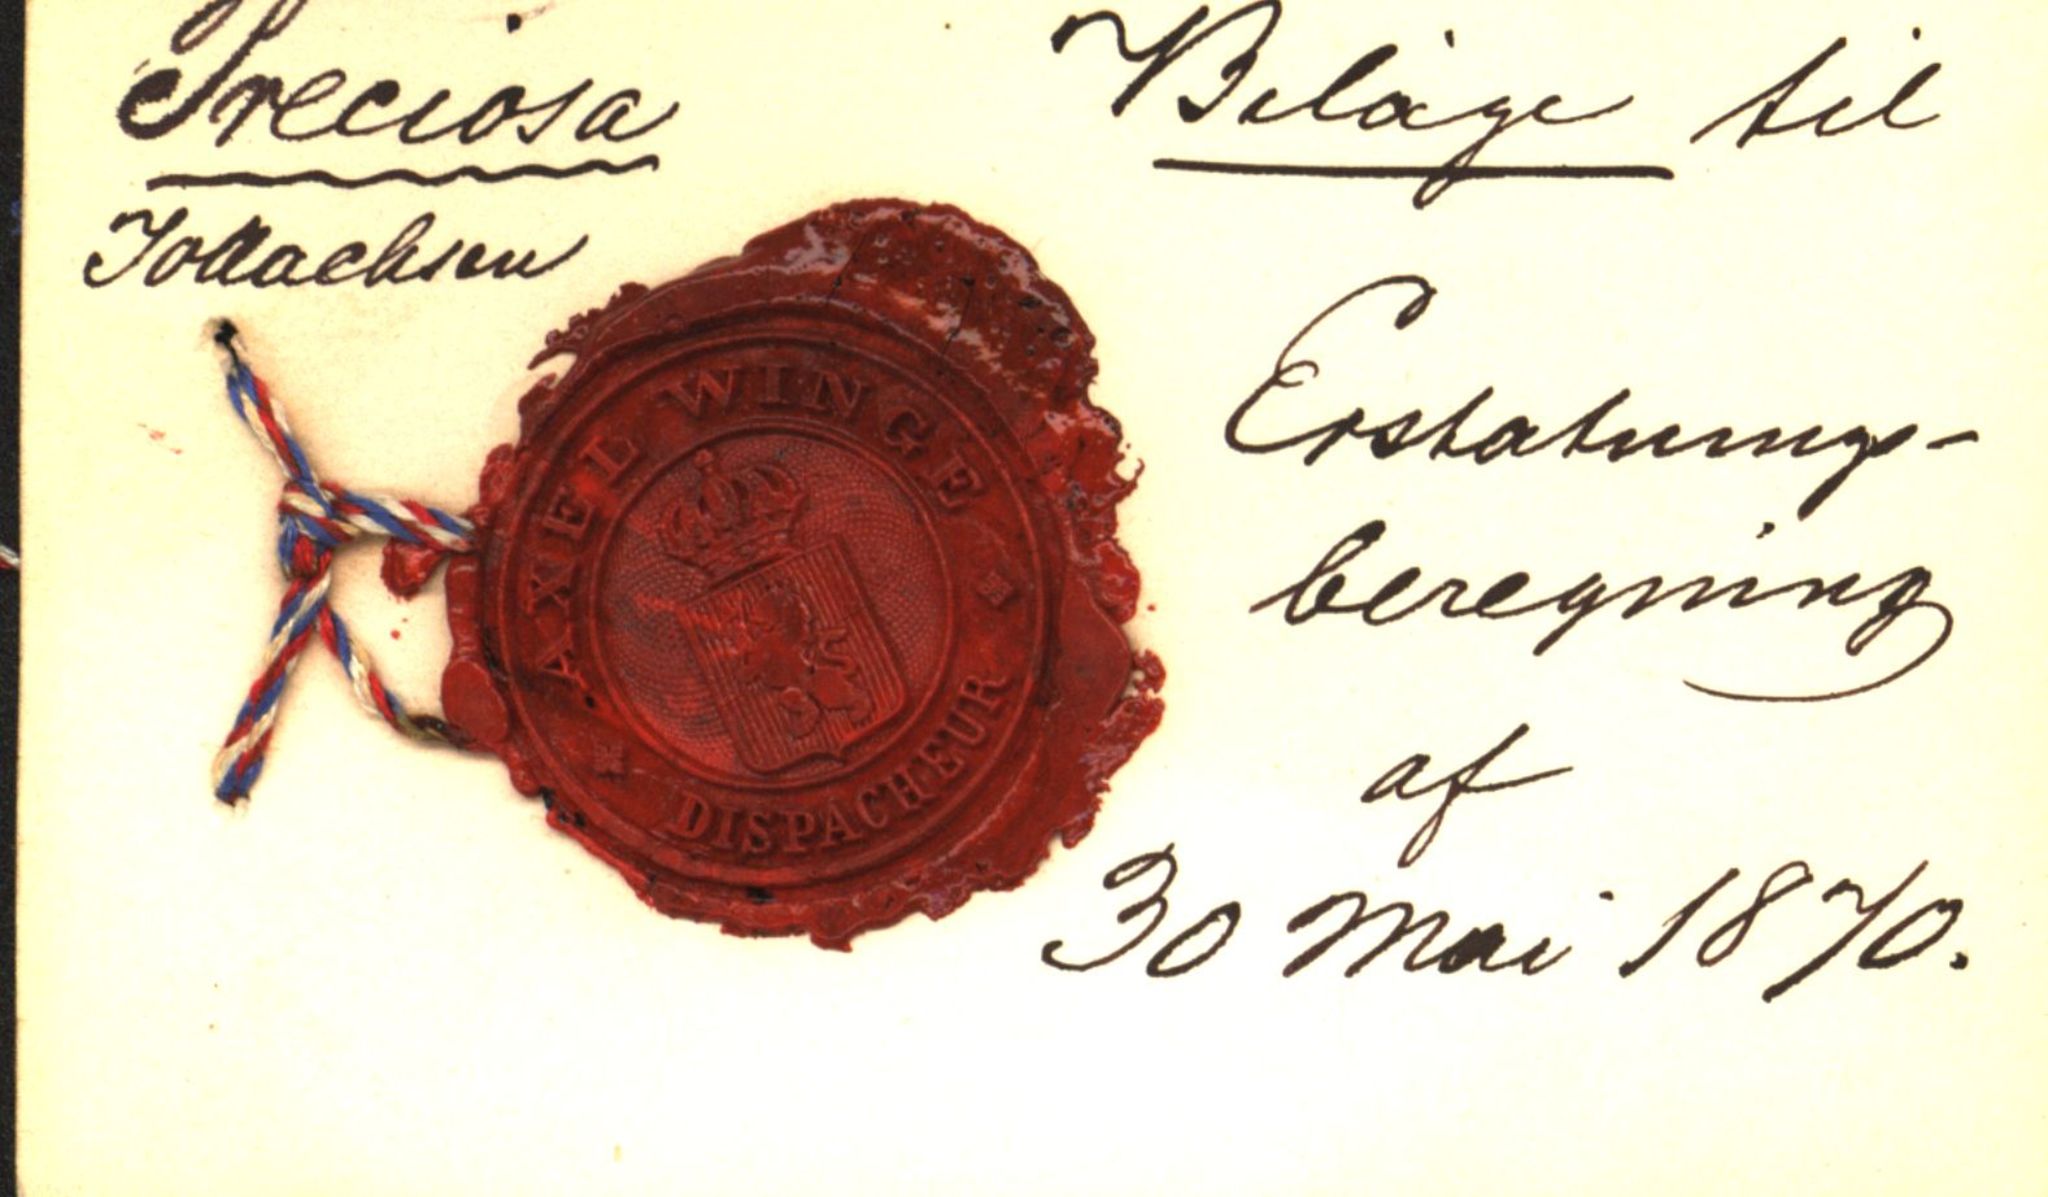 Preciosa
Bilage til
AXEL WINGE
DISPACHEUR
Erstatnings-
beregning
af
30 Mai 1870.